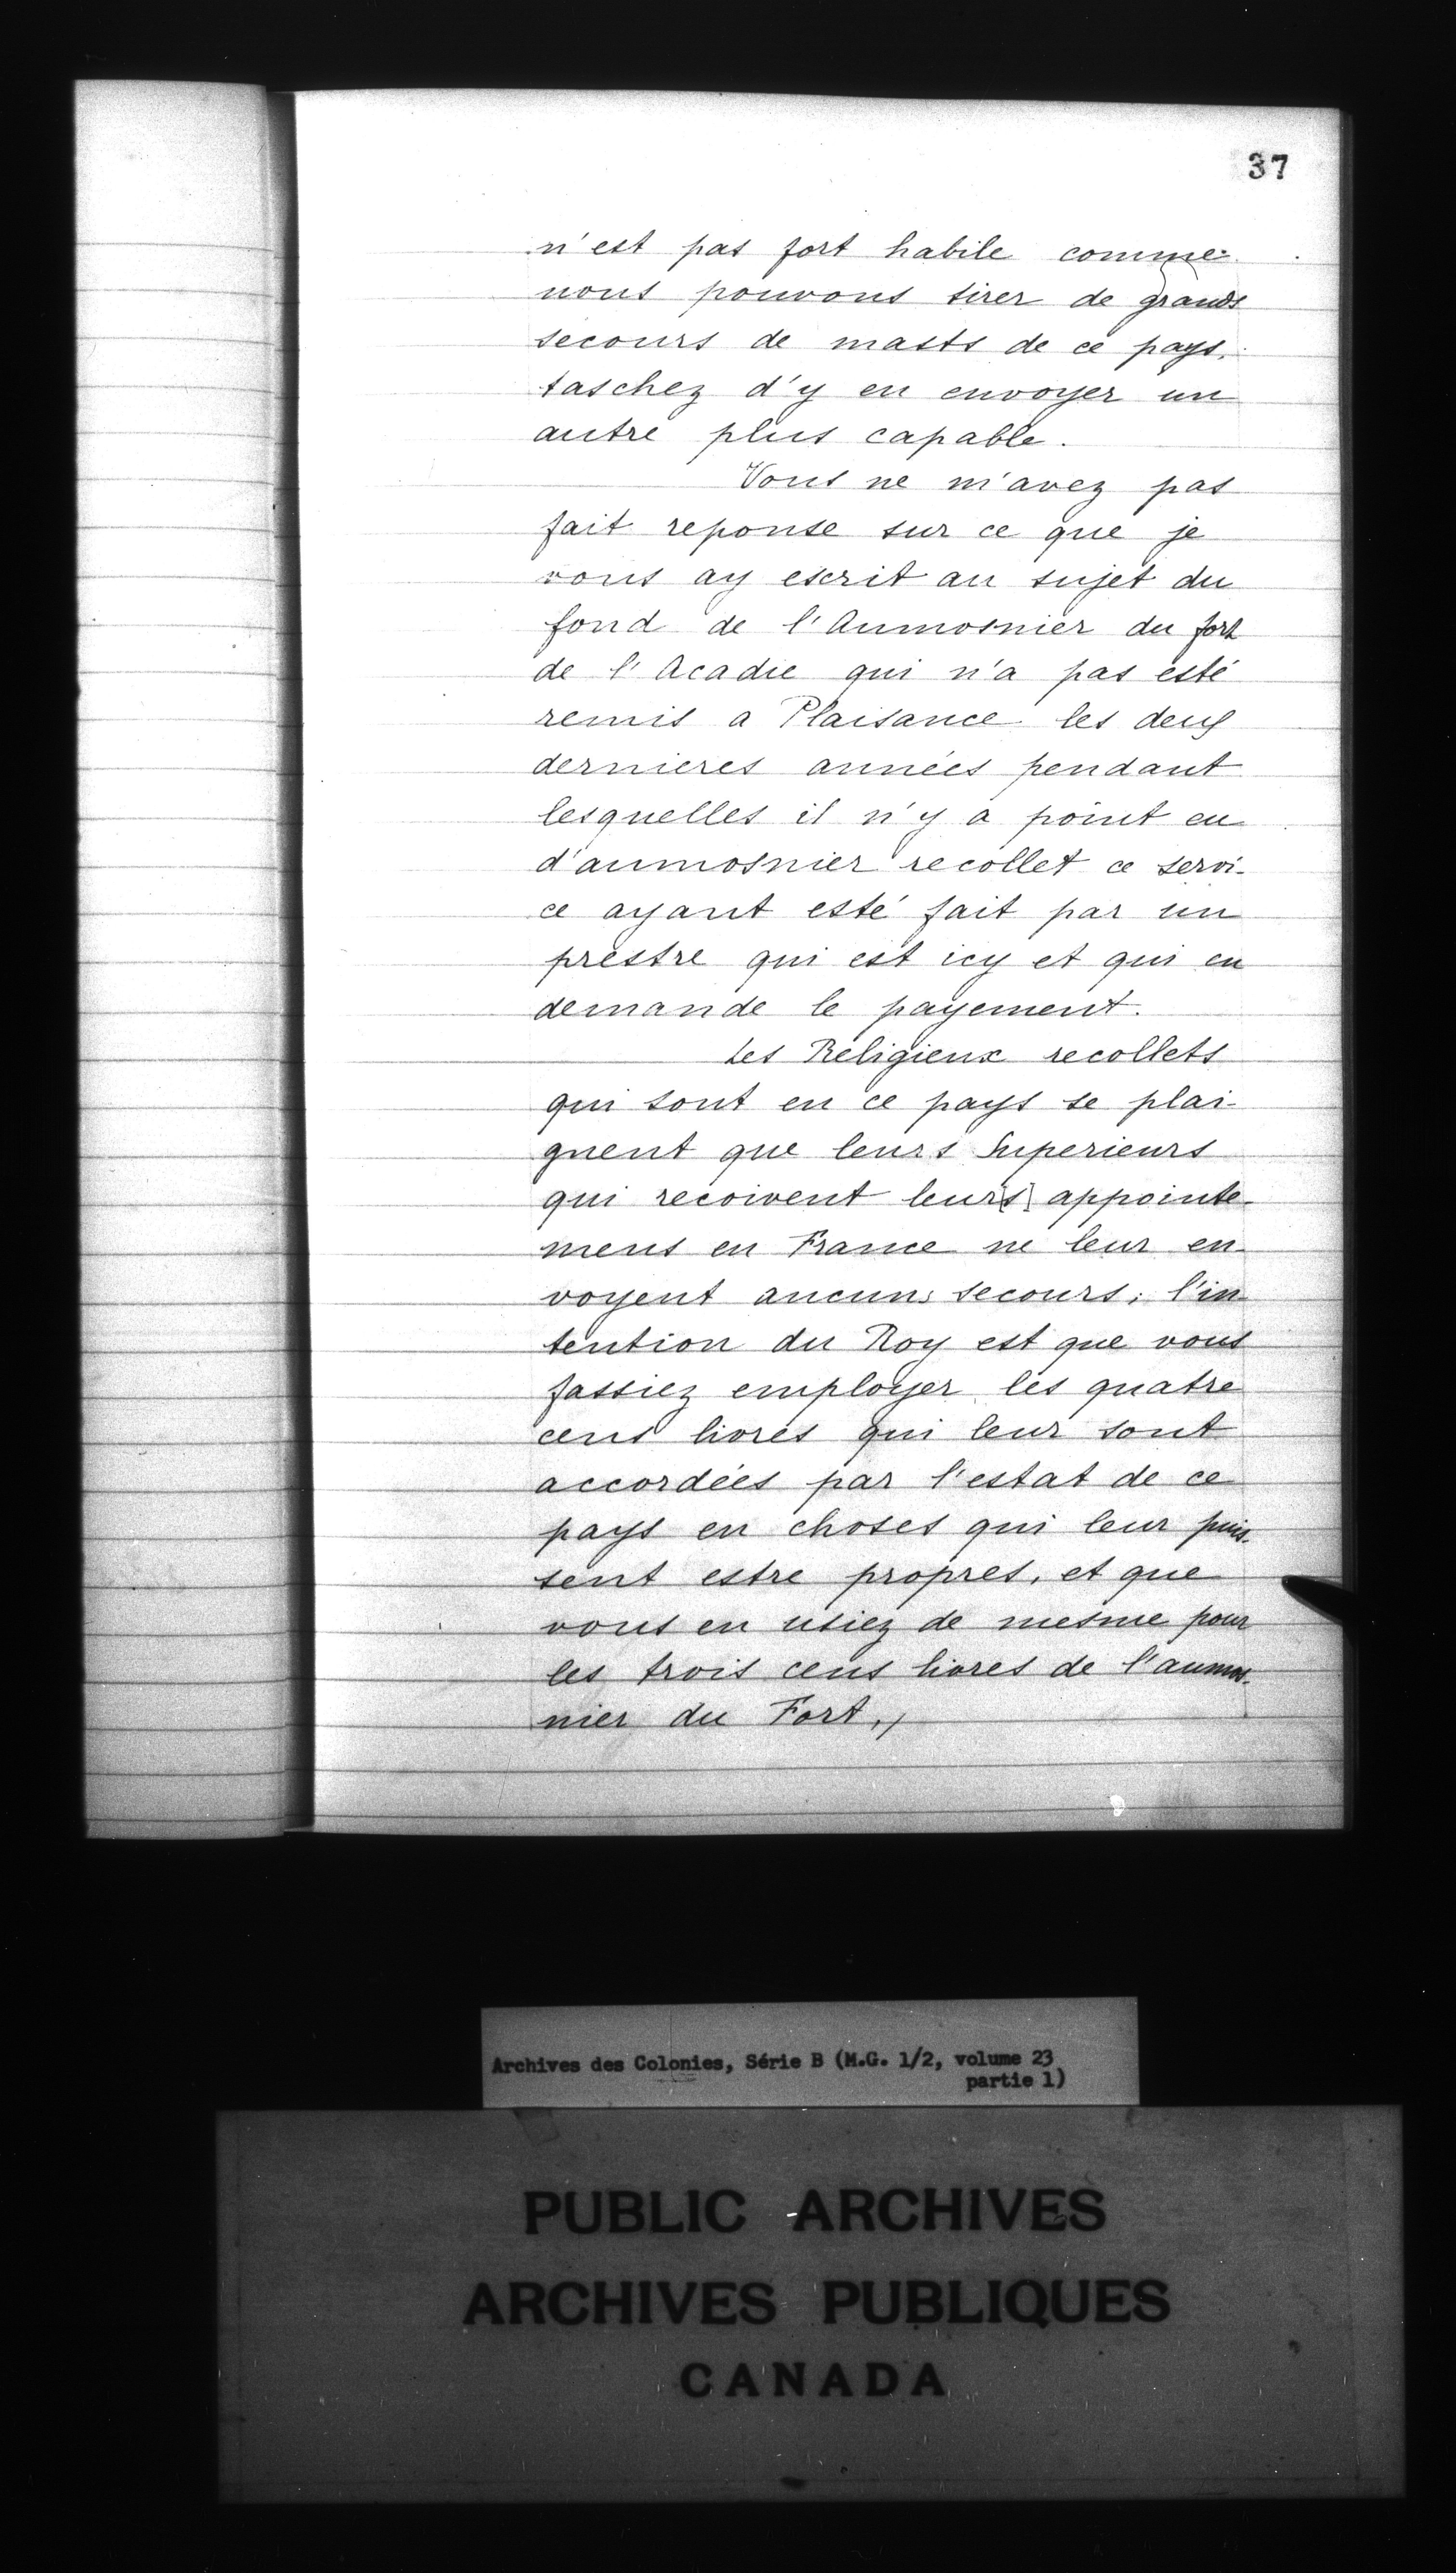 37
n'est pas fort habile comme
nous pouvons tirer de grands
secours de masts de ce pays.
taschez d'y en envoyer un
autre plus capable.
Vous ne m'avez pas
fait reponse sur ce que je
vous ay escrit au sujet du
fond de l'Aumosnier du fort
de l'Acadie qui n'a pas esté
remis a Plaisance les deux
dernieres années pendant
lesquelles il n'y a point eu
d'aumosnier recollet ce servi-
ce ayant esté fait par un
prestre qui est icy et qui en
demande le payement.
Les Religieux recollets
qui sont en ce pays se plai-
gnent que leurs Superieurs
qui recoivent leur[s] appointe-
mens en France ne leur en-
voyent aucuns secours; l'in-
tention du Roy est que vous
fassiez employer les quatre
cens livres qui leur sont
accordées par l'estat de ce
pays en choses qui leur puis-
sent estre propres, et que
vous en usiez de mesme pour
les trois cens livres de l'aumos-
nier du Fort.
Archives des Colonies, Série B (M.G. 1/2, volume 23
partie 1)
PUBLIC ARCHIVES
ARCHIVES PUBLIQUES
CANADA